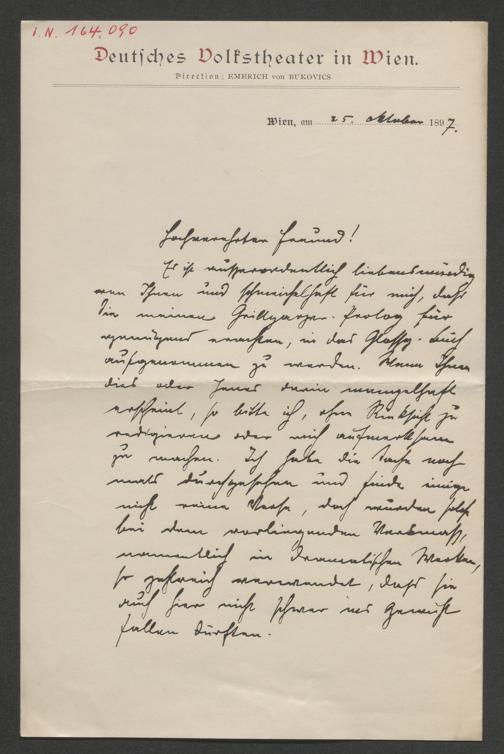 I.N. 164.090
Deutsches Volkstheater in Wien.
Direction: EMERICH von BUKOVICS.
Wien, am 25. Oktober 1897.
Hochverehrter Freund!
Es ist außerordentlich liebenswürdig
von Ihnen und schmeichelhaft für mich, daß
Sie meinen Grillparzer-Prolog für
genügend erachten, in das Glossy-Buch
aufgenommen zu werden. Wenn Ihnen
dies oder Jenes darin mangelhaft
erscheint, so bitte ich, ohne Rücksicht zu
redigieren oder mich aufmerksam
zu machen. Ich habe die Sache noch
mals durchgesehen und finde einige
nicht reine Verse, doch wurden solche
bei dem vorliegenden Versmaß,
namentlich in dramatischen Werken,
so zahlreich verwendet, daß sie
auch hier nicht schwer ins Gewicht
fallen dürften.